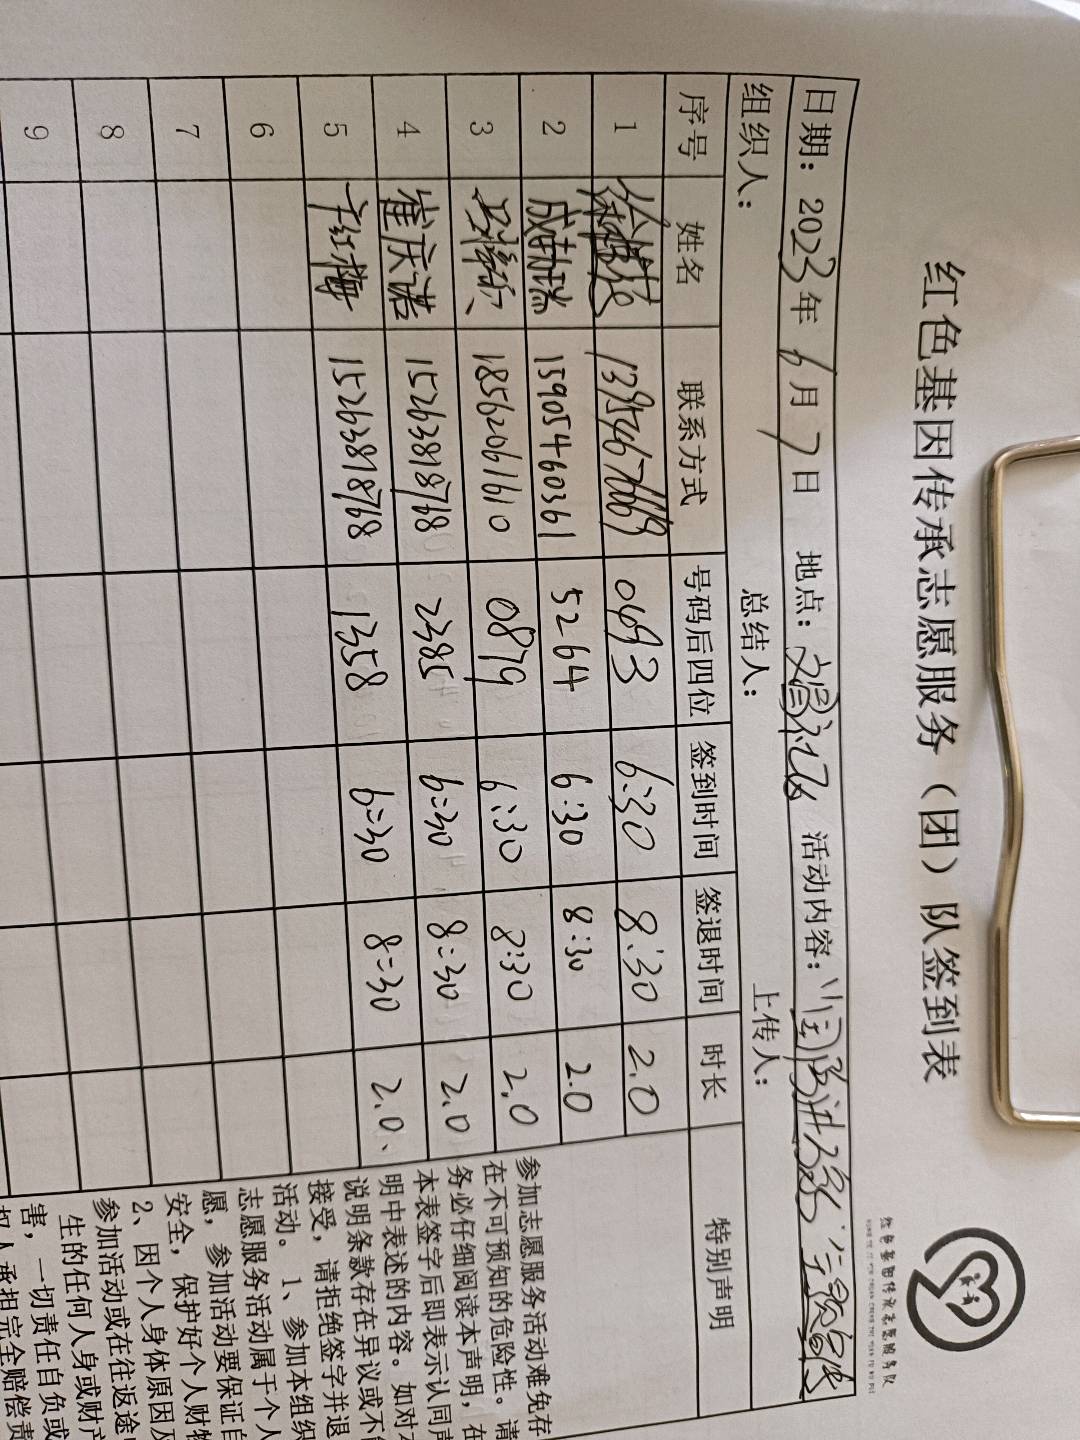 红色基因传承志愿服务（团）队签到表
红色基因传承志愿服务队
日期：2023年6月7日 地点： 活动内容：
组织人： 总结人： 上传人：
序号 姓名 联系方式 号码后四位 签到时间 签退时间 时长 特别声明
1 0493 6:30 8:30 2.0
2 成勋瑞 15905460361 5264 6:30 8:30 2.0
3 18562061610 0879 6:30 8:30 2.0
4 崔庆诺 15263818768 2385 6:30 8:30 2.0
5 红梅 15263818768 1358 6:30 8:30 2.0、
6
7
8
9
参加志愿服务活动难免存
在不可预知的危险性。请
务必仔细阅读本声明，在
本表签字后即表示认同声
明中表述的内容。如对
说明条款存在异议或不
接受，请拒绝签字并退
活动。 1、参加本组织
志愿服务活动属于个人
愿，参加活动要保证自
安全，保护好个人财物
2、因个人身体原因及
参加活动或在往返途
生的任何人身或财产
害，一切责任自负或
权人承担完全赔偿责